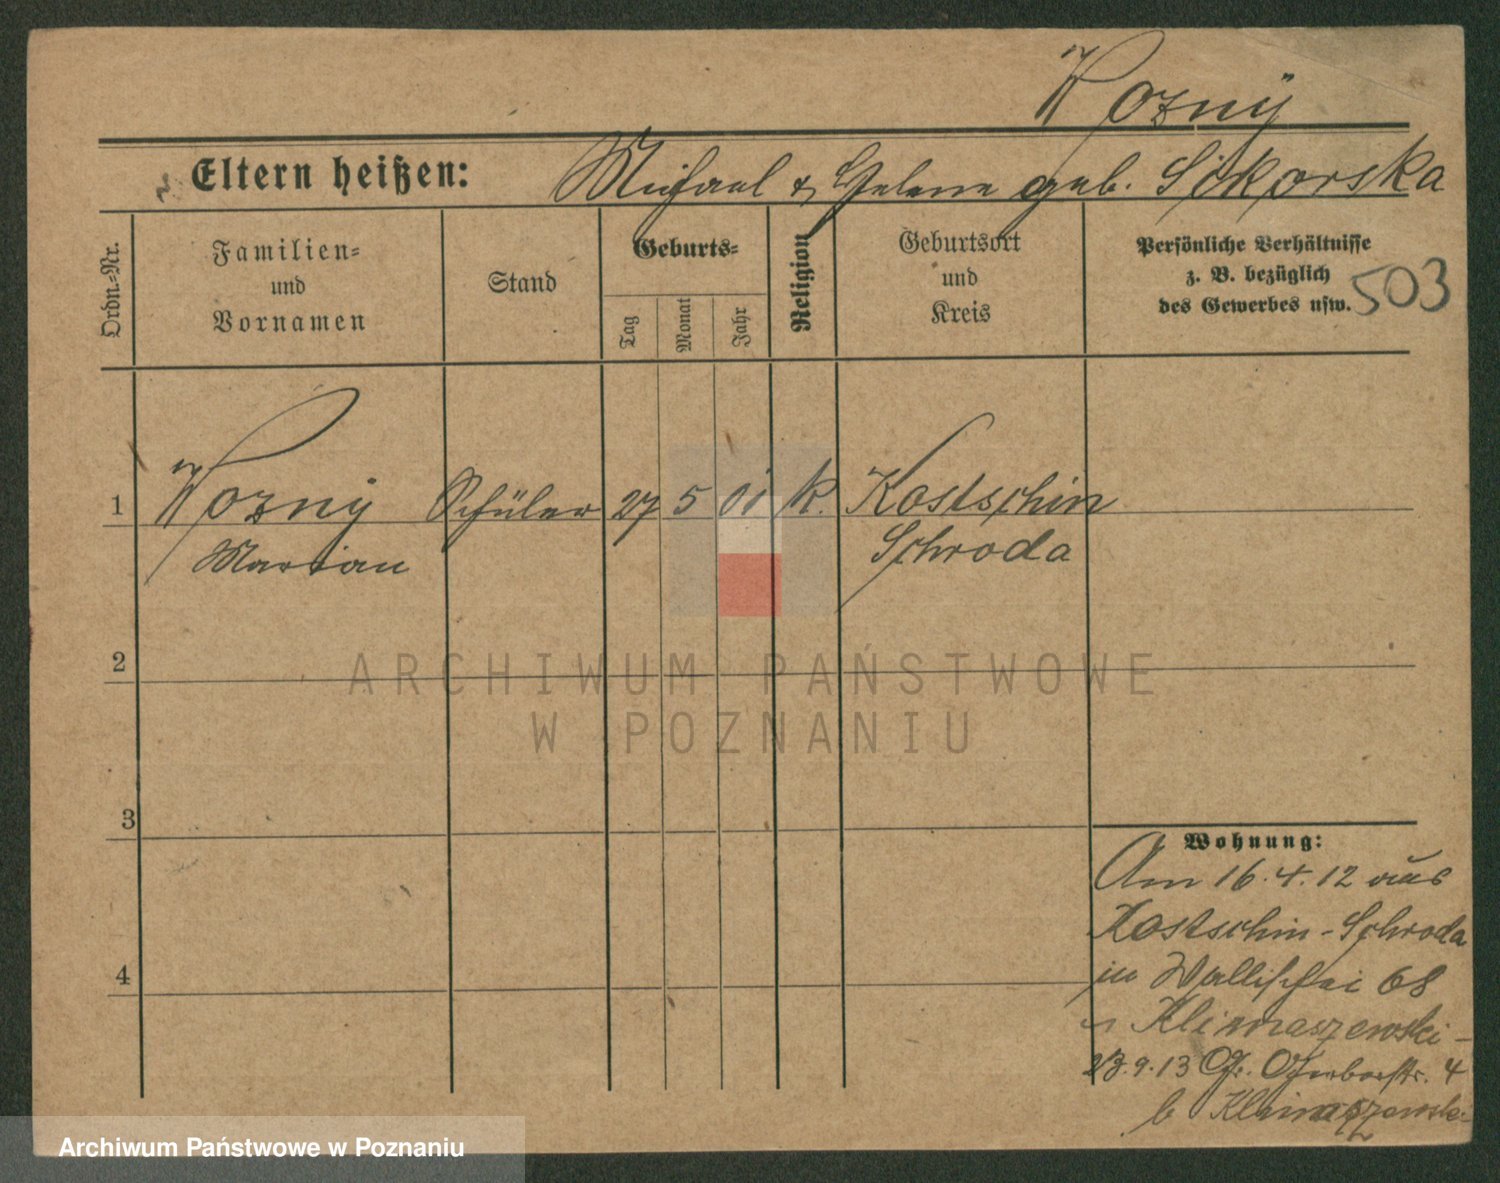 Wozny
Eltern heißen: Michael & Helene geb. Sikorska
Ordn.-Nr.
Familien-
und
Vornamen
Stand
Geburts-
Tag
Monat
Jahr
Religion
Geburtsort
und
Kreis
Persönliche Verhältnisse
z. B. bezüglich
des Gewerbes usw.
503
1 Wozny Schüler 27 5 01 k. Kostschin
Marian Schroda
2
ARCHIWUM PAŃSTWOWE
W POZNANIU
3
Wohnung:
Am 16.4.12 aus
Kostschin-Schroda
in Wallischei 68
Klimaszewski
23.9.13 Gr. Gerberstr. 4
b Klimaszewski
4
Archiwum Państwowe w Poznaniu